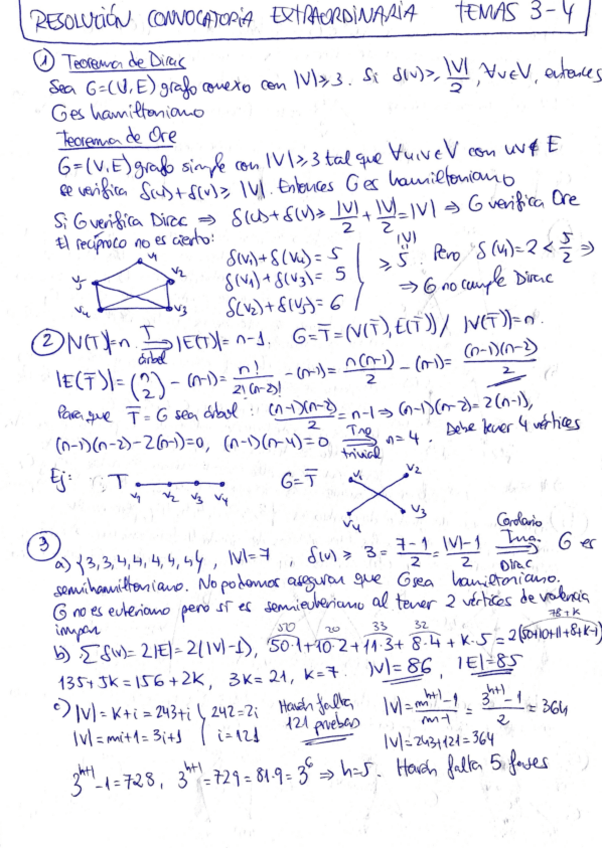 RESOLUCIÓN CONVOCATORIA EXTRAORDINARIA TEMAS 3-4
① Teorema de Dirac
Sea G=(V,E) grafo conexo con |V|≥3. Si δ(v)≥ |V|/2, ∀v∈V, entonces
G es hamiltoniano
Teorema de Ore
G=(V,E) grafo simple con |V|≥3 tal que ∀u,v∈V con uv∉E
se verifica δ(u)+δ(v)≥|V|. Entonces G es hamiltoniano
Si G verifica Dirac ⇒ δ(u)+δ(v)≥ |V|/2 + |V|/2 = |V| ⇒ G verifica Ore
El recíproco no es cierto:
v1 v2 v3 v4 v5
δ(v1)+δ(v4)=5
δ(v1)+δ(v3)=5
δ(v2)+δ(v5)=6
|V|
≥ 5. Pero δ(v1)=2<5/2 ⇒
⇒ G no cumple Dirac
② |V(T)|=n ⇒ |E(T)|=n-1. G=T̅=(V(T̅),E(T̅)) / |V(T̅)|=n.
T árbol
|E(T̅)|=(n 2)-(n-1)= n!/2!(n-2)! -(n-1)= n(n-1)/2 -(n-1)= (n-1)(n-2)/2
Para que T̅=G sea árbol: (n-1)(n-2)/2 = n-1 ⇒ (n-1)(n-2)=2(n-1),
(n-1)(n-2)-2(n-1)=0, (n-1)(n-4)=0 ⇒ n=4. Debe tener 4 vértices
T no trivial
Ej: T v1 v2 v3 v4 G=T̅ v1 v2 v3 v4
③
a) {3,3,4,4,4,4,4}, |V|=7, δ(v)≥3= 7-1/2 = |V|-1/2 ⇒ G es
Corolario Tma. Dirac
semihamiltoniano. No podemos asegurar que G sea hamiltoniano.
G no es euleriano pero sí es semieuleriano al tener 2 vértices de valencia
impar
b) Σδ(v)=2|E|=2(|V|-1), 50·1+10·2+11·3+8·4+K·5=2(50+10+11+8+K-1)
50 20 33 32 78+K
135+5K=156+2K, 3K=21, K=7. |V|=86, |E|=85
c) |V|=K+i=243+i
|V|=mi+1=3i+1
242=2i
i=121
Harán falta
121 pruebas
|V|= m^(h+1)-1/m-1 = 3^(h+1)-1/2 = 364
|V|=243+121=364
3^(h+1)-1=728, 3^(h+1)=729=81·9=3^6 ⇒ h=5. Harán falta 5 fases